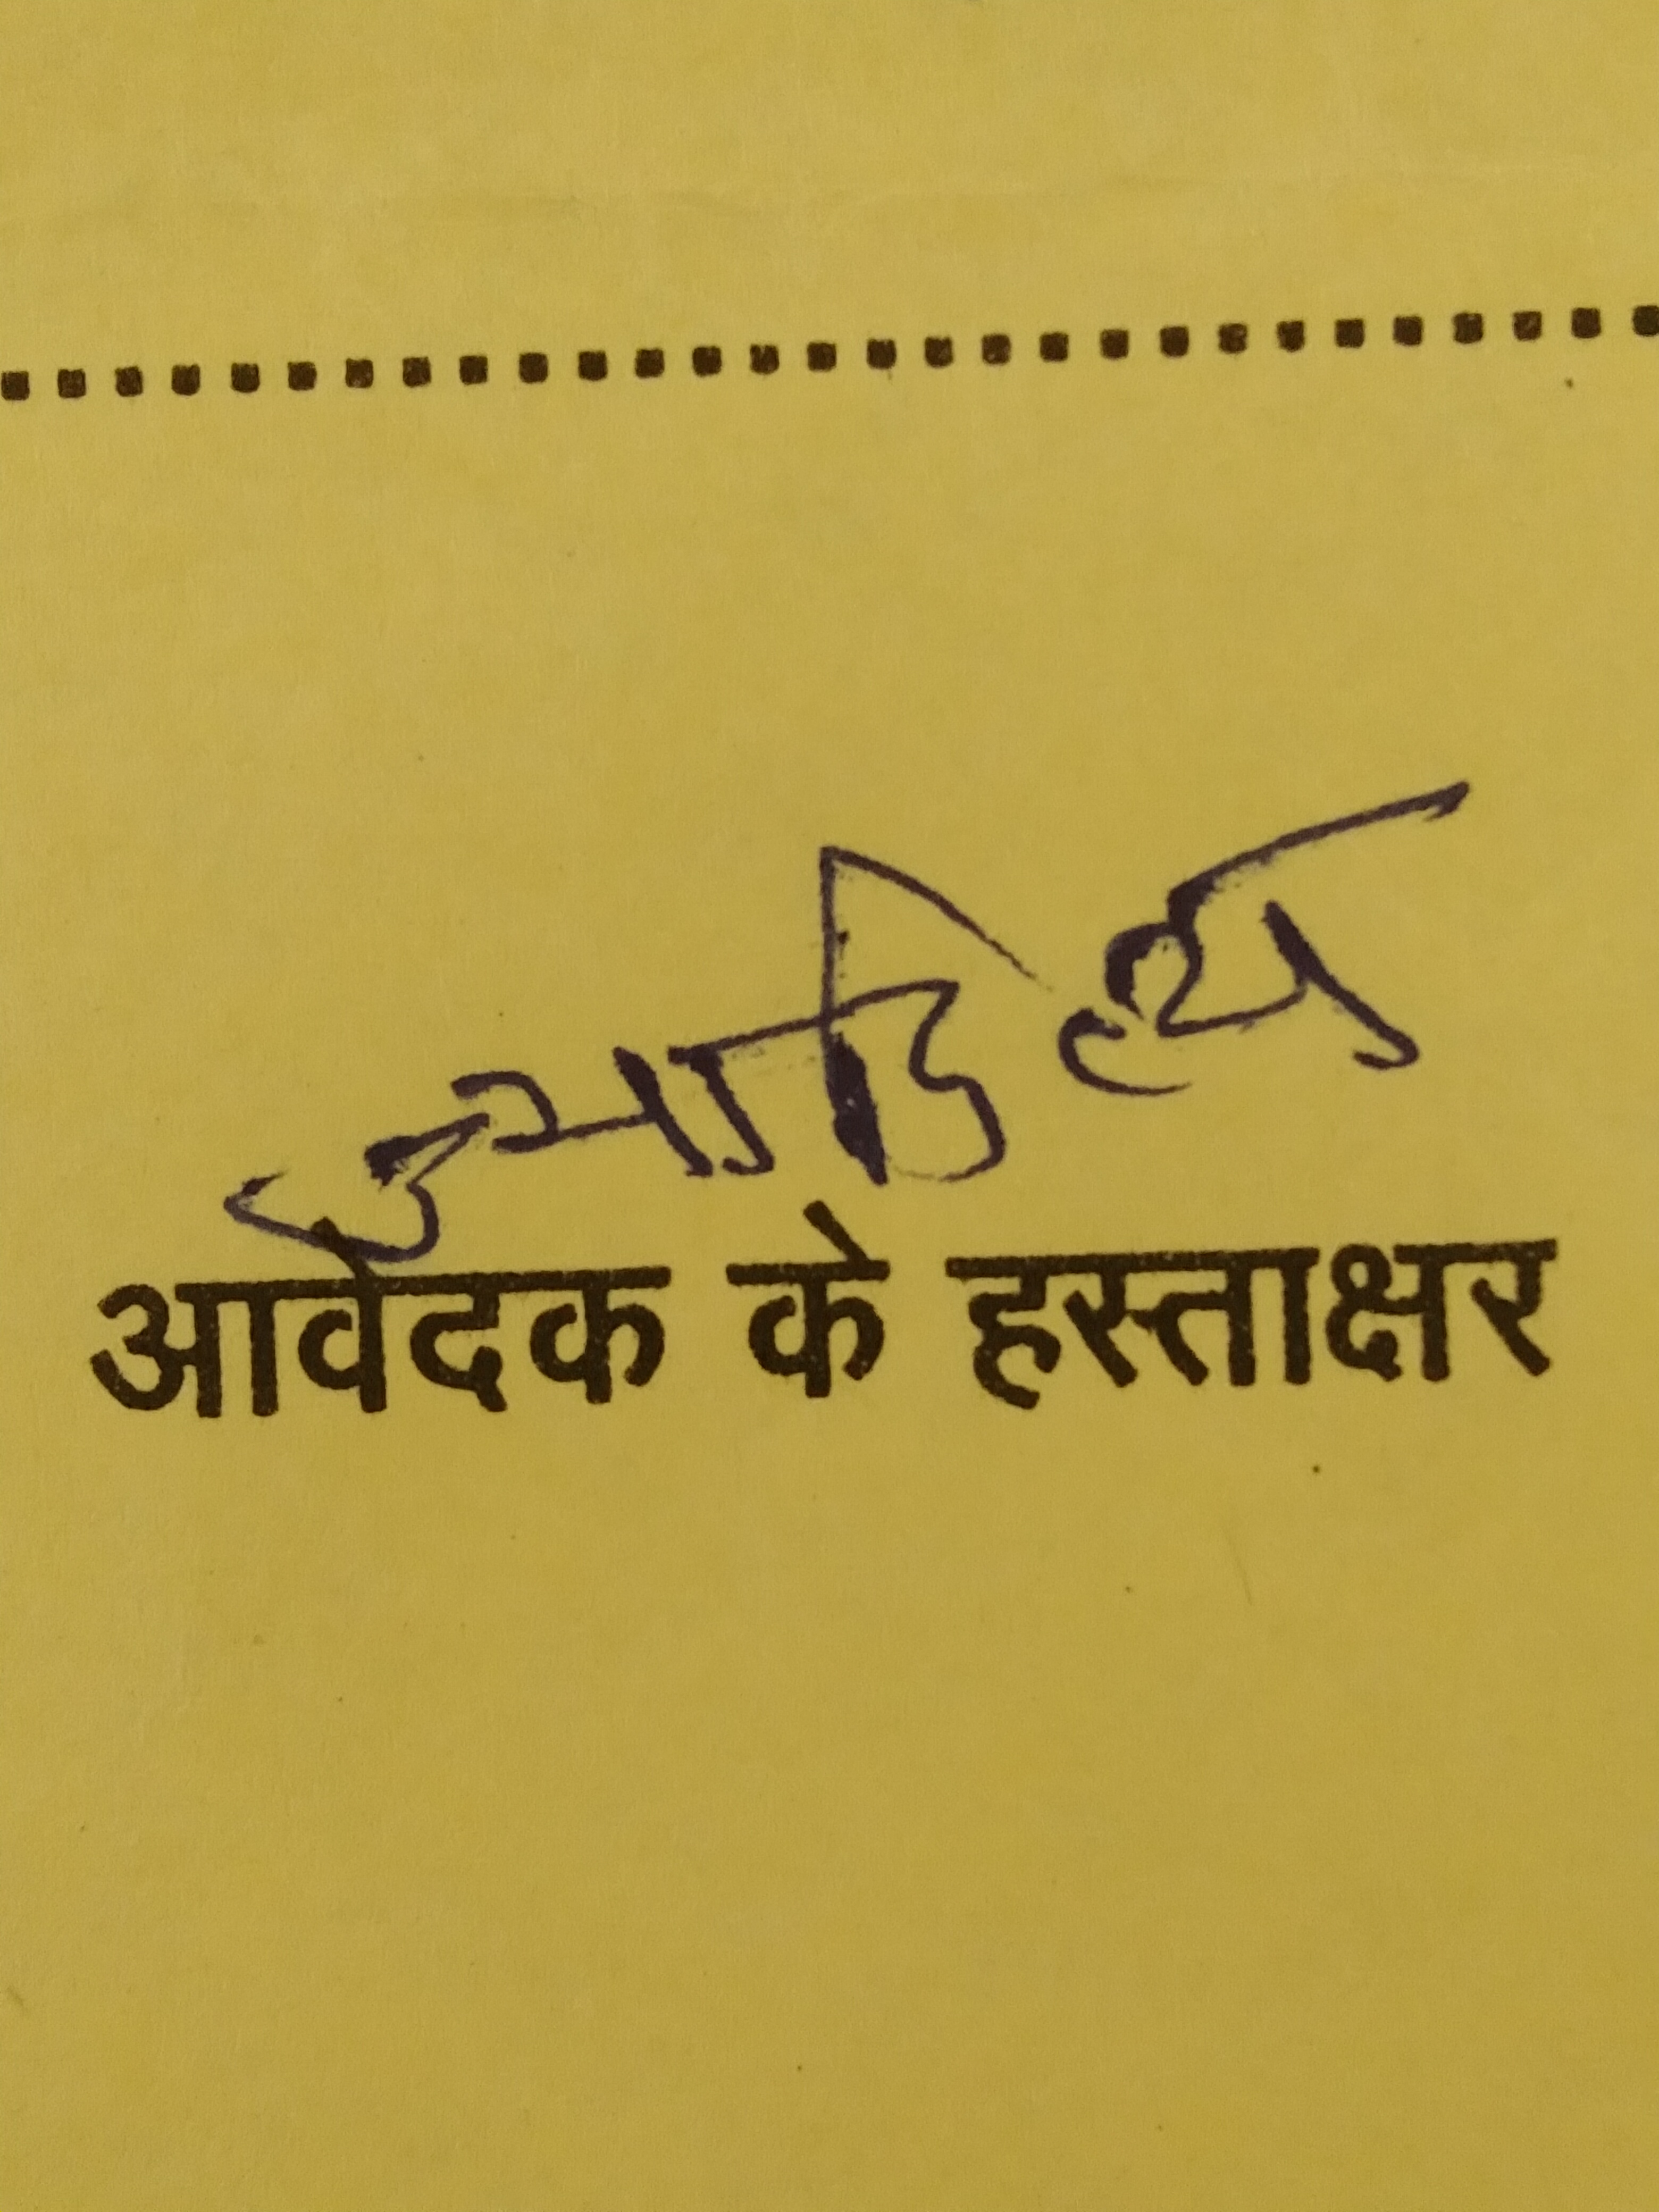 आदित्य
आवेदक के हस्ताक्षर